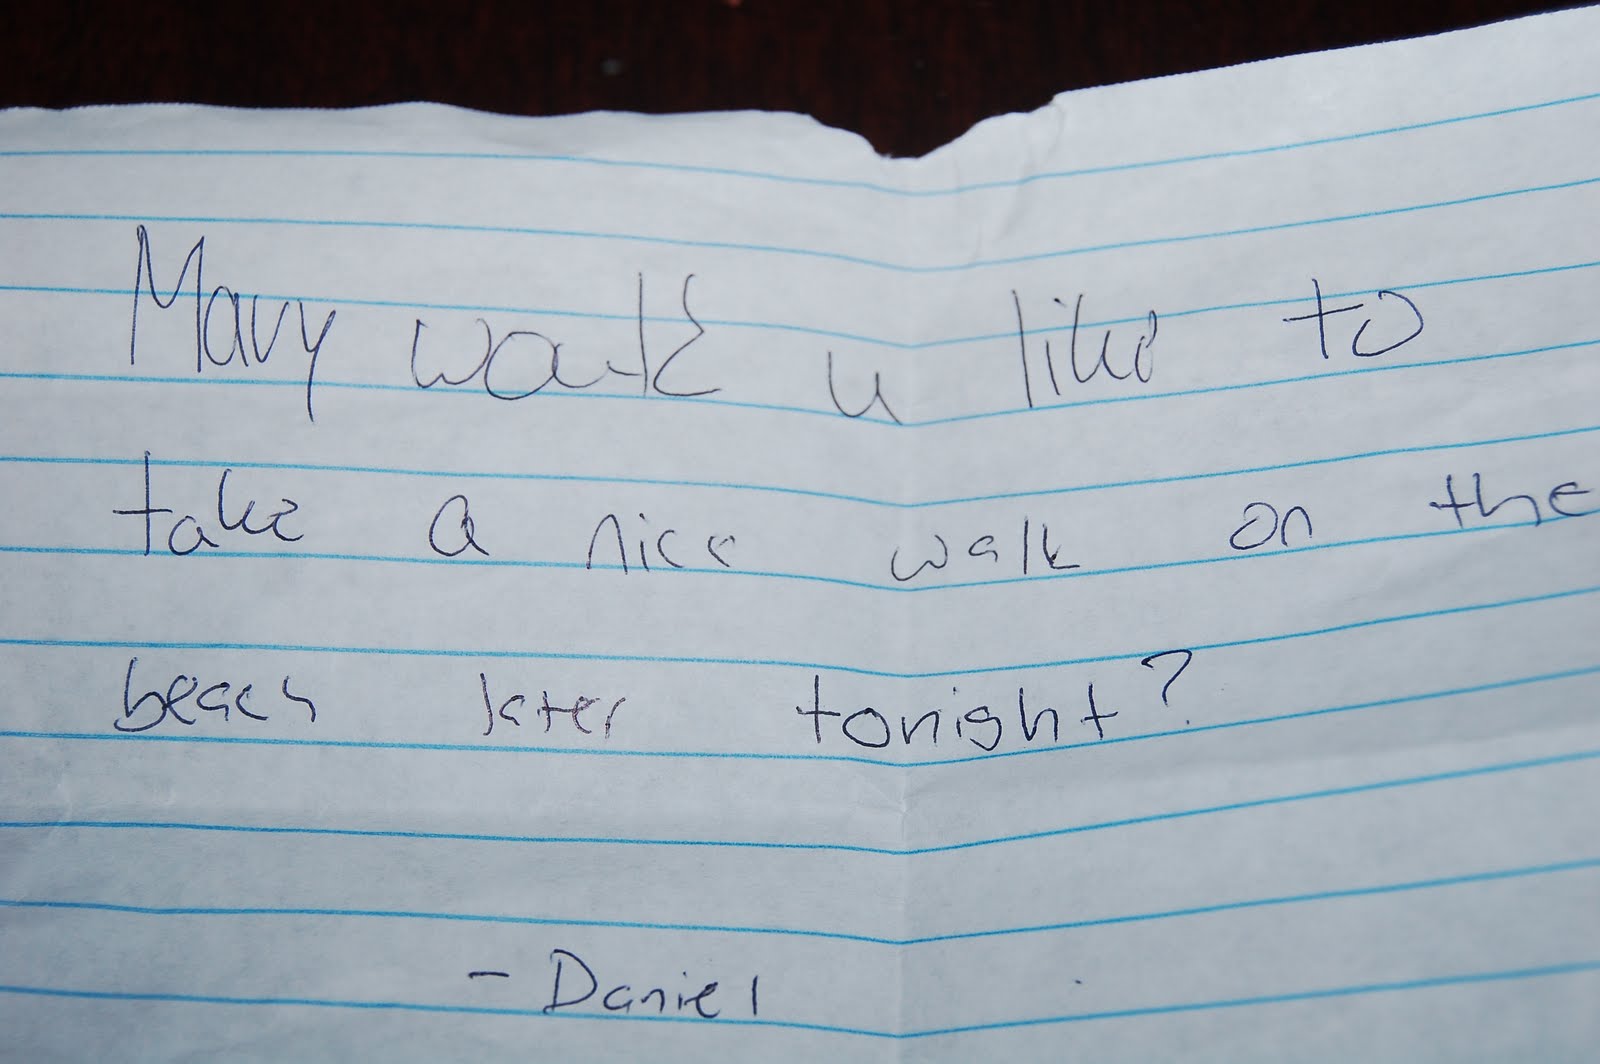 Mary u like to
take a nice walk on the
beach later tonight?
- Daniel